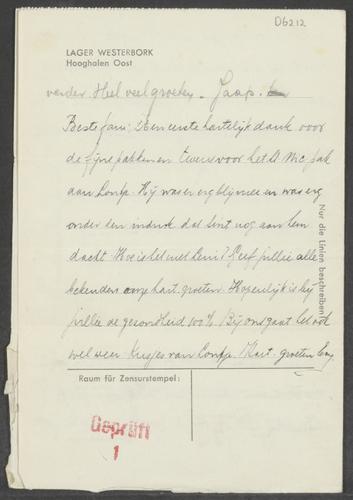 D6212
LAGER WESTERBORK
Hooghalen Oost
verder Heel veel groeten. Jaap.
Beste fam: Ten eerste hartelijk dank voor
de fijne pakken en tevens voor het St. Nic. pak
aan Loutje. Hij was er erg blij mee en was erg
onder den indruk dat Sint nog aan hem
dacht. Hoe is het met Leni? Geef jullie alle
bekenden onze hart. groeten. Hopenlijk is bij
jullie de gezondheid 100%. Bij ons gaat het ook
wel weer. Kusjes van Loutje. Hart. groeten
Nur die Linien beschreiben!
Raum für Zensurstempel:
Geprüft
1